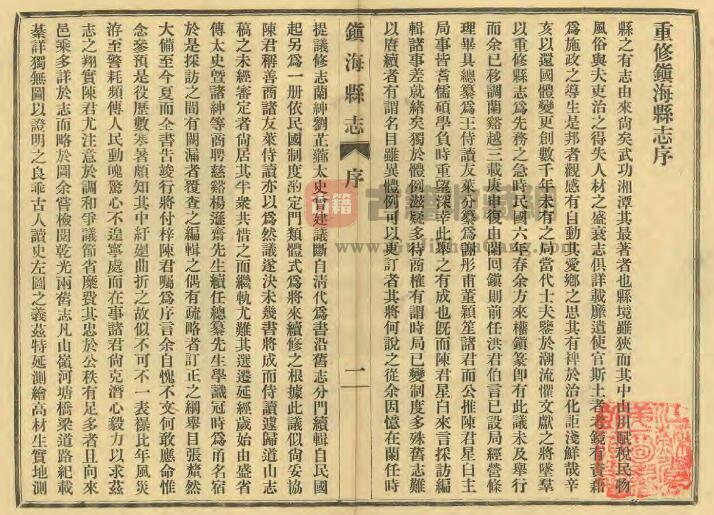 重修鎮海縣志序
縣之有志由來尙矣武功湘潭其最著者也縣境雖狹而其中山川賦稅民物
風俗與夫吏治之得失人材之盛衰志俱詳載靡遺使官斯土者考鏡有資藉
爲施政之導生是邦者觀感有自動其愛鄉之思其有裨於治化詎淺鮮哉辛
亥以還國體變更創數千年未有之局當代士夫鑒於潮流懼文獻之將墜羣
以重修縣志爲先務之急時民國六年春余方來權鎮篆卽有此議未及舉行
而余已移調蘭谿越三載庚申復由蘭回鎮則前任洪君伯言已設局經營條
理畢具總纂爲王侍讀友萊分纂爲謝彤甫董穎笙諸君而公推陳君星白主
局事皆耆儒碩學負時重望深幸此舉之有成也旣而陳君星白來言採訪編
輯諸事差就緒矣獨於體例滋疑多待商榷有謂時局已變制度多殊舊志難
以賡續者有謂名目雖異體例可以更訂者其將何說之從余因憶在蘭任時
鎮海縣志 序 一
提議修志蘭紳劉芷薌太史曾建議斷自清代爲書沿舊志分門續輯自民國
起另爲一册依民國制度酌定門類體式爲將來續修之根據此議似尙妥協
陳君稱善商諸友萊侍讀亦以爲然議遂決未幾書將成而侍讀遽歸道山志
稿之未經審定者尙居其半衆共惜之而繼軌尤難其選遷延經歲始由盛省
傳太史曁諸紳等商聘慈谿楊遜齋先生續任總纂先生學識冠時爲甬名宿
於是採訪之間有闕漏者覆查之編輯之偶有疏略者訂正之綱舉目張釐然
大備至今夏而全書吿竣行將付梓陳君囑爲序言余自愧不文何敢應命惟
念參預是役歷數寒暑頗知其中紆𢌞曲折之故似不可不一表襮比年風災
洊至警耗頻傳人民動魄驚心不遑寧處而在事諸君尙克潛心毅力以求茲
志之翔實陳君尤注意於調和爭議節省糜費其忠於公秩有足多者且向來
邑乘多詳於志而略於圖余嘗檢閱乾光兩舊志凡山嶺河塘橋梁道路紀載
綦詳獨無圖以證明之良乖古人讀史左圖之義茲特延測繪高材生實地測